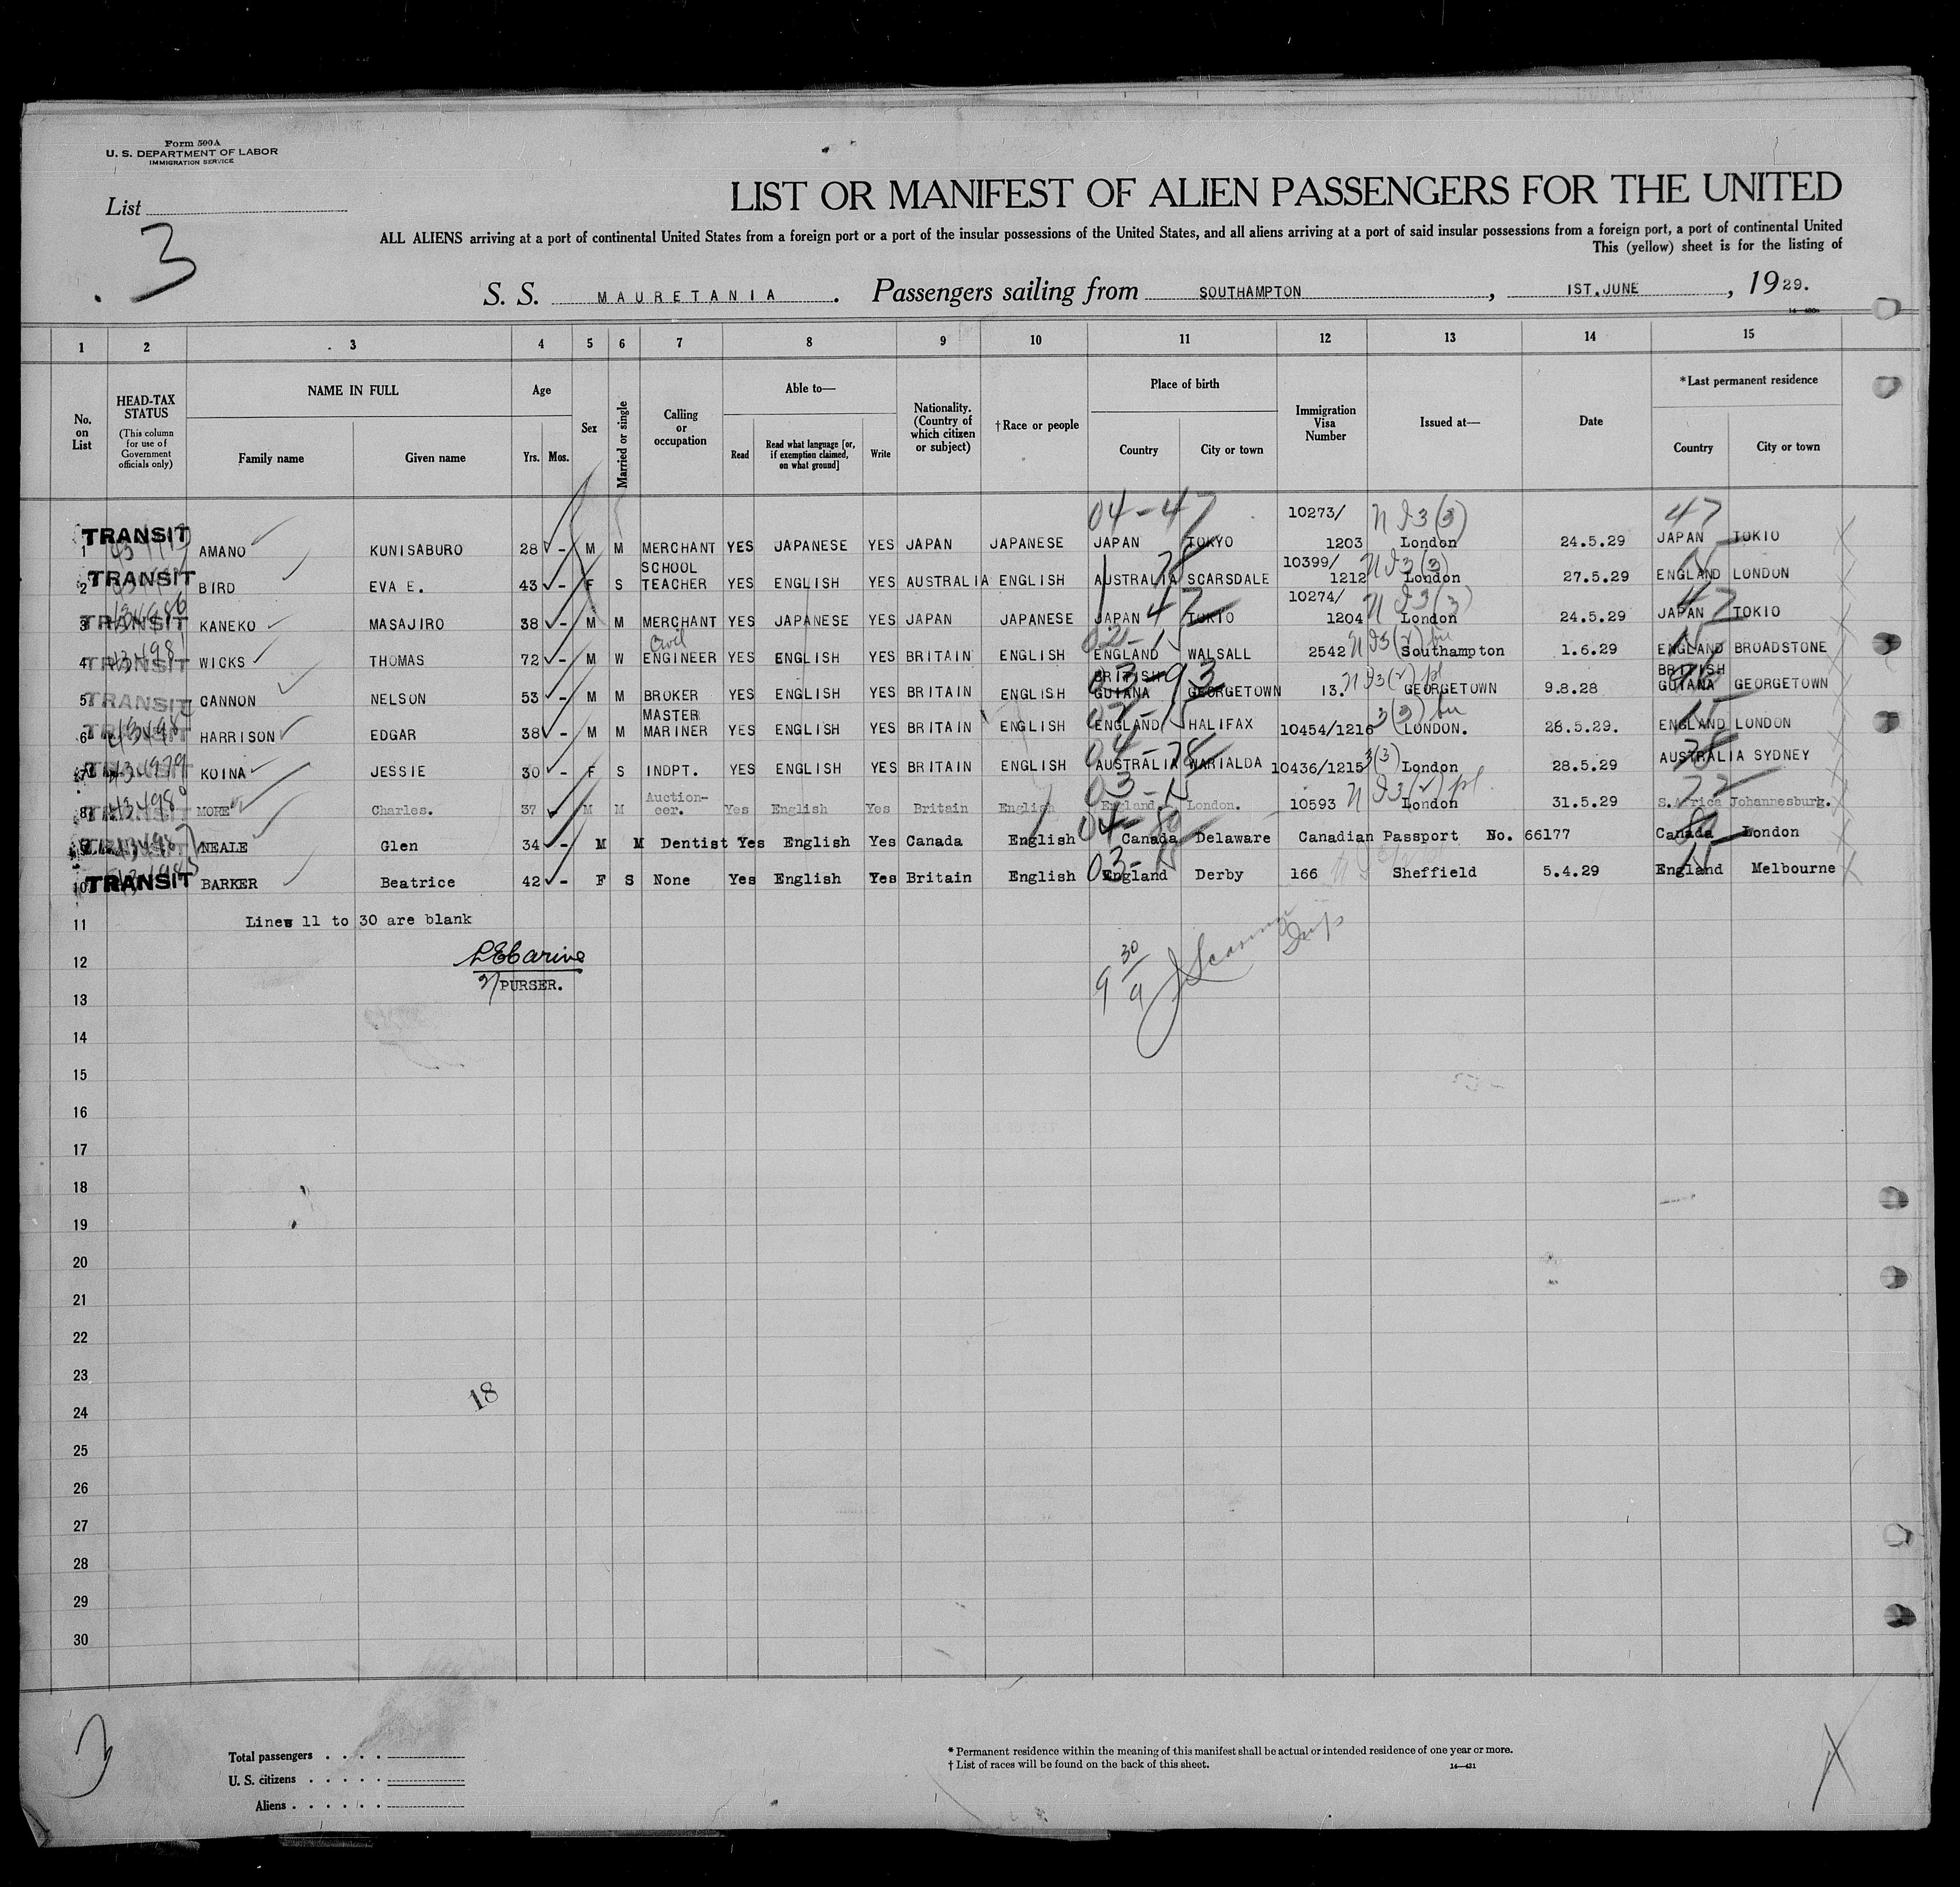 Form 500A
U. S. DEPARTMENT OF LABOR
IMMIGRATION SERVICE
List
3
LIST OR MANIFEST OF ALIEN PASSENGERS FOR THE UNITED
ALL ALIENS arriving at a port of continental United States from a foreign port or a port of the insular possessions of the United States, and all aliens arriving at a port of said insular possessions from a foreign port, a port of continental United
This (yellow) sheet is for the listing of
S. S. MAURETANIA. Passengers sailing from SOUTHAMPTON, 1ST.JUNE, 1929.
1 2 3 4 5 6 7 8 9 10 11 12 13 14 15
No. on List
HEAD-TAX STATUS (This column for use of Government officials only)
NAME IN FULL
Family name Given name
Age
Yrs. Mos.
Sex
Married or single
Calling or occupation
Able to—
Read
Read what language [or, if exemption claimed, on what ground]
Write
Nationality. (Country of which citizen or subject)
†Race or people
Place of birth
Country City or town
Immigration Visa Number
Issued at—
Date
*Last permanent residence
Country City or town
04-47 47
1 TRANSIT AMANO KUNISABURO 28 - M M MERCHANT YES JAPANESE YES JAPAN JAPANESE JAPAN TOKYO 10273/ 1203 London 24.5.29 JAPAN TOKIO
2 TRANSIT BIRD EVA E. 43 - F S SCHOOL TEACHER YES ENGLISH YES AUSTRALIA ENGLISH AUSTRALIA SCARSDALE 10399/ 1212 London 27.5.29 ENGLAND LONDON
3 TRANSIT KANEKO MASAJIRO 38 - M M MERCHANT YES JAPANESE YES JAPAN JAPANESE JAPAN TOKIO 10274/ 1204 London 24.5.29 JAPAN TOKIO
4 TRANSIT WICKS THOMAS 72 - M W Civil ENGINEER YES ENGLISH YES BRITAIN ENGLISH ENGLAND WALSALL 2542 Southampton 1.6.29 ENGLAND BROADSTONE
5 TRANSIT CANNON NELSON 53 - M M BROKER YES ENGLISH YES BRITAIN ENGLISH BRITISH GUIANA GEORGETOWN 13. GEORGETOWN 9.8.28 BRITISH GUIANA GEORGETOWN
6 TRANSIT HARRISON EDGAR 38 - M M MASTER MARINER YES ENGLISH YES BRITAIN ENGLISH ENGLAND HALIFAX 10454/1216 LONDON. 26.5.29. ENGLAND LONDON
7 TRANSIT KOINA JESSIE 30 - F S INDPT. YES ENGLISH YES BRITAIN ENGLISH AUSTRALIA WARIALDA 10436/1215 London 28.5.29 AUSTRALIA SYDNEY
8 TRANSIT MORE Charles. 37 M M Auction-eer. Yes English Yes Britain English England. London. 10593 London 31.5.29 S.Africa Johannesburg.
9 TRANSIT NEALE Glen 34 - M M Dentist Yes English Yes Canada English Canada Delaware Canadian Passport No. 66177 Canada London
10 TRANSIT BARKER Beatrice 42 - F S None Yes English Yes Britain English England Derby 166 Sheffield 5.4.29 England Melbourne
11 Lines 11 to 30 are blank
12
PURSER.
13
14
15
16
17
18
19
20
21
22
23
18
24
25
26
27
28
29
30
Total passengers . . . .
U. S. citizens . . . . .
Aliens . . . . . .
* Permanent residence within the meaning of this manifest shall be actual or intended residence of one year or more.
† List of races will be found on the back of this sheet.
14—431